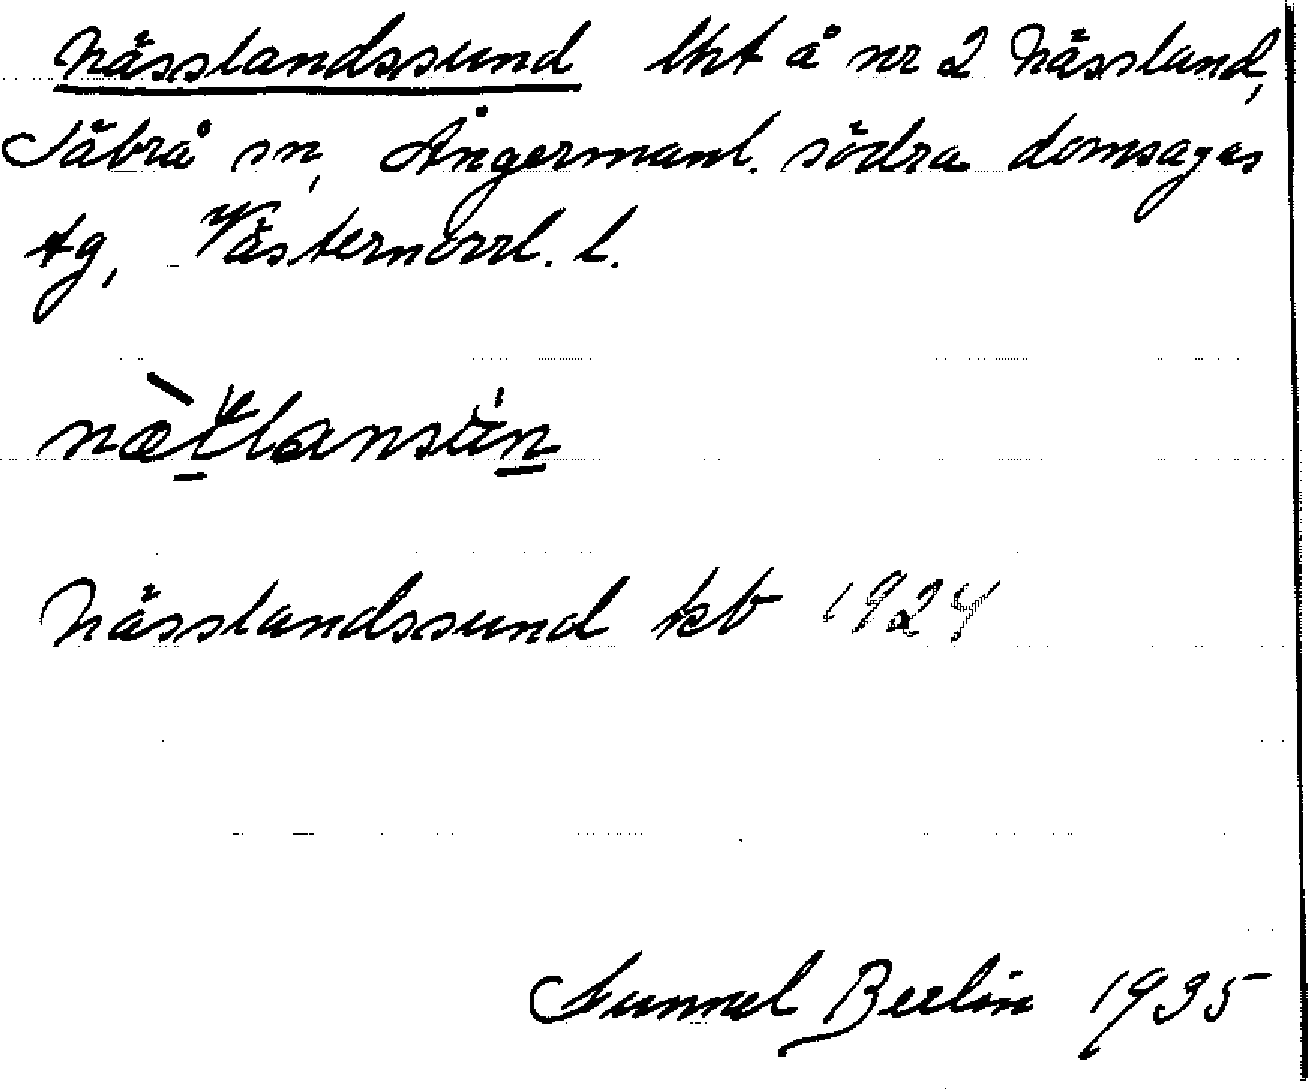 Nässlandssund lht å nr 2 Nässland,
Säbrå sn, Ångermanl. södra domsagas
tg, Västernorrl. l.
Nässlandssund kb 1924
Gunnel Berlin 1935